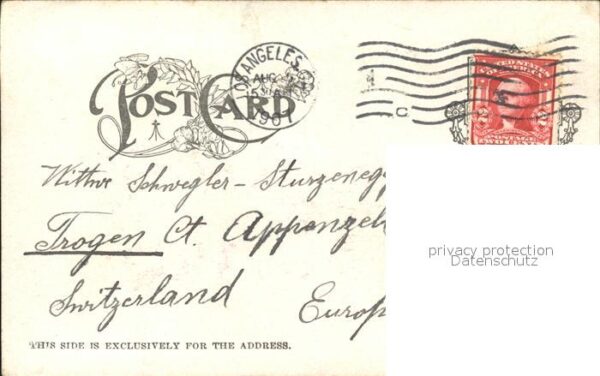 POST CARD
LOS ANGELES,
AUG
1901
UNITED STATES
POSTAGE
Wittwe Schwegler - Sturzenegg
Trogen Ct. Appenzel
Switzerland Europ
privacy protection
Datenschutz
THIS SIDE IS EXCLUSIVELY FOR THE ADDRESS.